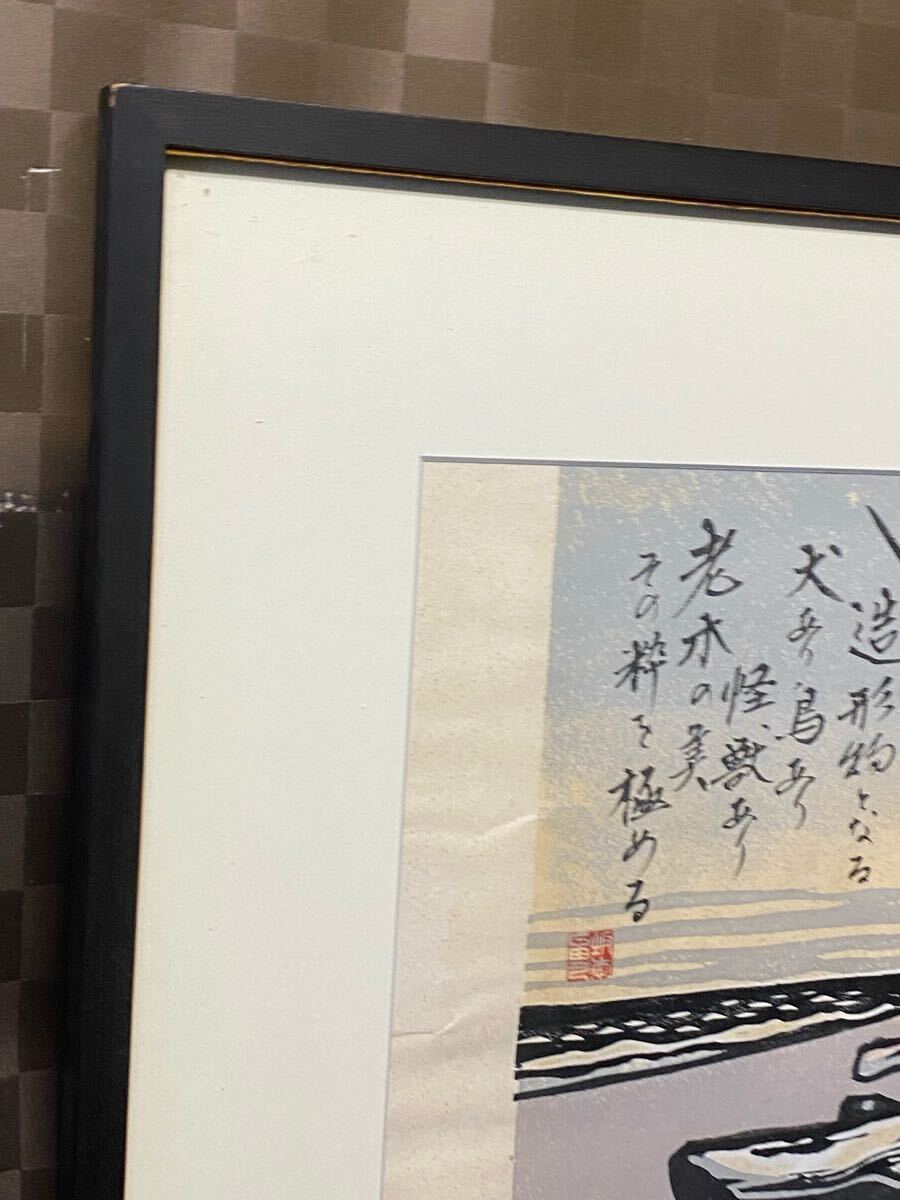 造形物となる
犬あり鳥あり
怪獣あり
老木の美
その粋を極める